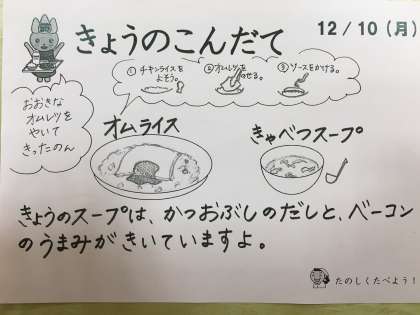 きょうのこんだて
12/10(月)
①チキンライスを
よそう。
②オムレツを
のせる。
③ソースをかける。
おおきな
オムレツを
やいて
きったのん
オムライス
きゃべつスープ
きょうのスープは、かつおぶしのだしと、ベーコン
のうまみがきいていますよ。
たのしくたべよう!